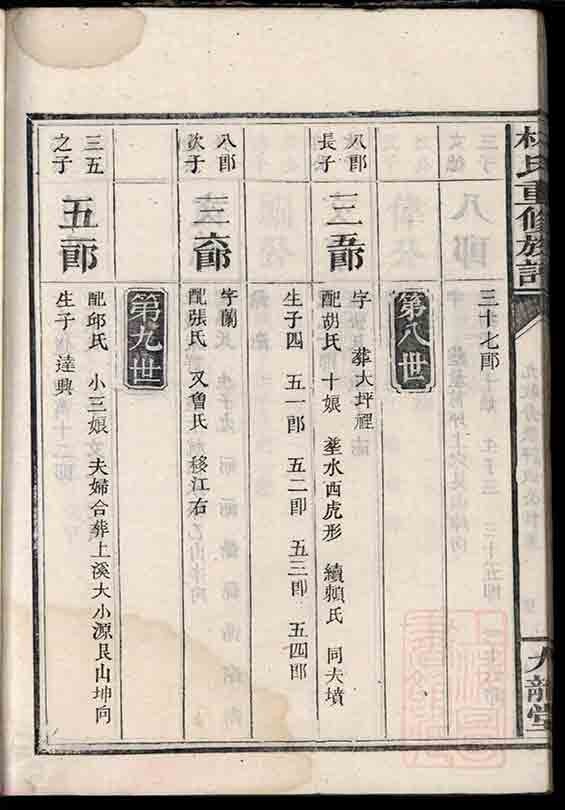 林氏重修族譜
龍堂
三十七郎
第八世
八郎
長子
三五郎
字 葬大坪裡
配胡氏 十娘 塟水西虎形 續賴氏 同夫墳
生子四 五一郎 五二郎 五三郎 五四郎
八郎
次子
三六郎
字蘭氏
配張氏 又魯氏 移江右
第九世
三五
之子
五一郎
配邱氏 小三娘 夫婦合葬上溪大小源艮山坤向
生子 達興